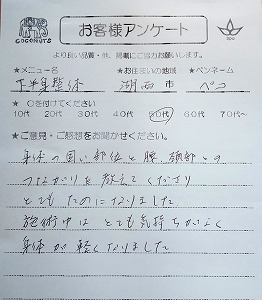 COCONUTS
お客様アンケート
spa
より良い品質・他、掲載にご協力お願いします。
★メニュー名 ★お住まいの地域 ★ペンネーム
下半身整体 湖西市 ペコ
★ ○を付けてください
10代 20代 30代 40代 50代 60代 70代〜
★ご意見・ご感想をお聞かせください。
身体の固い部位と腰、頭部との
つながりを教えてくださり
とてもためになりました
施術中はとても気持ちがよく
身体が軽くなりました